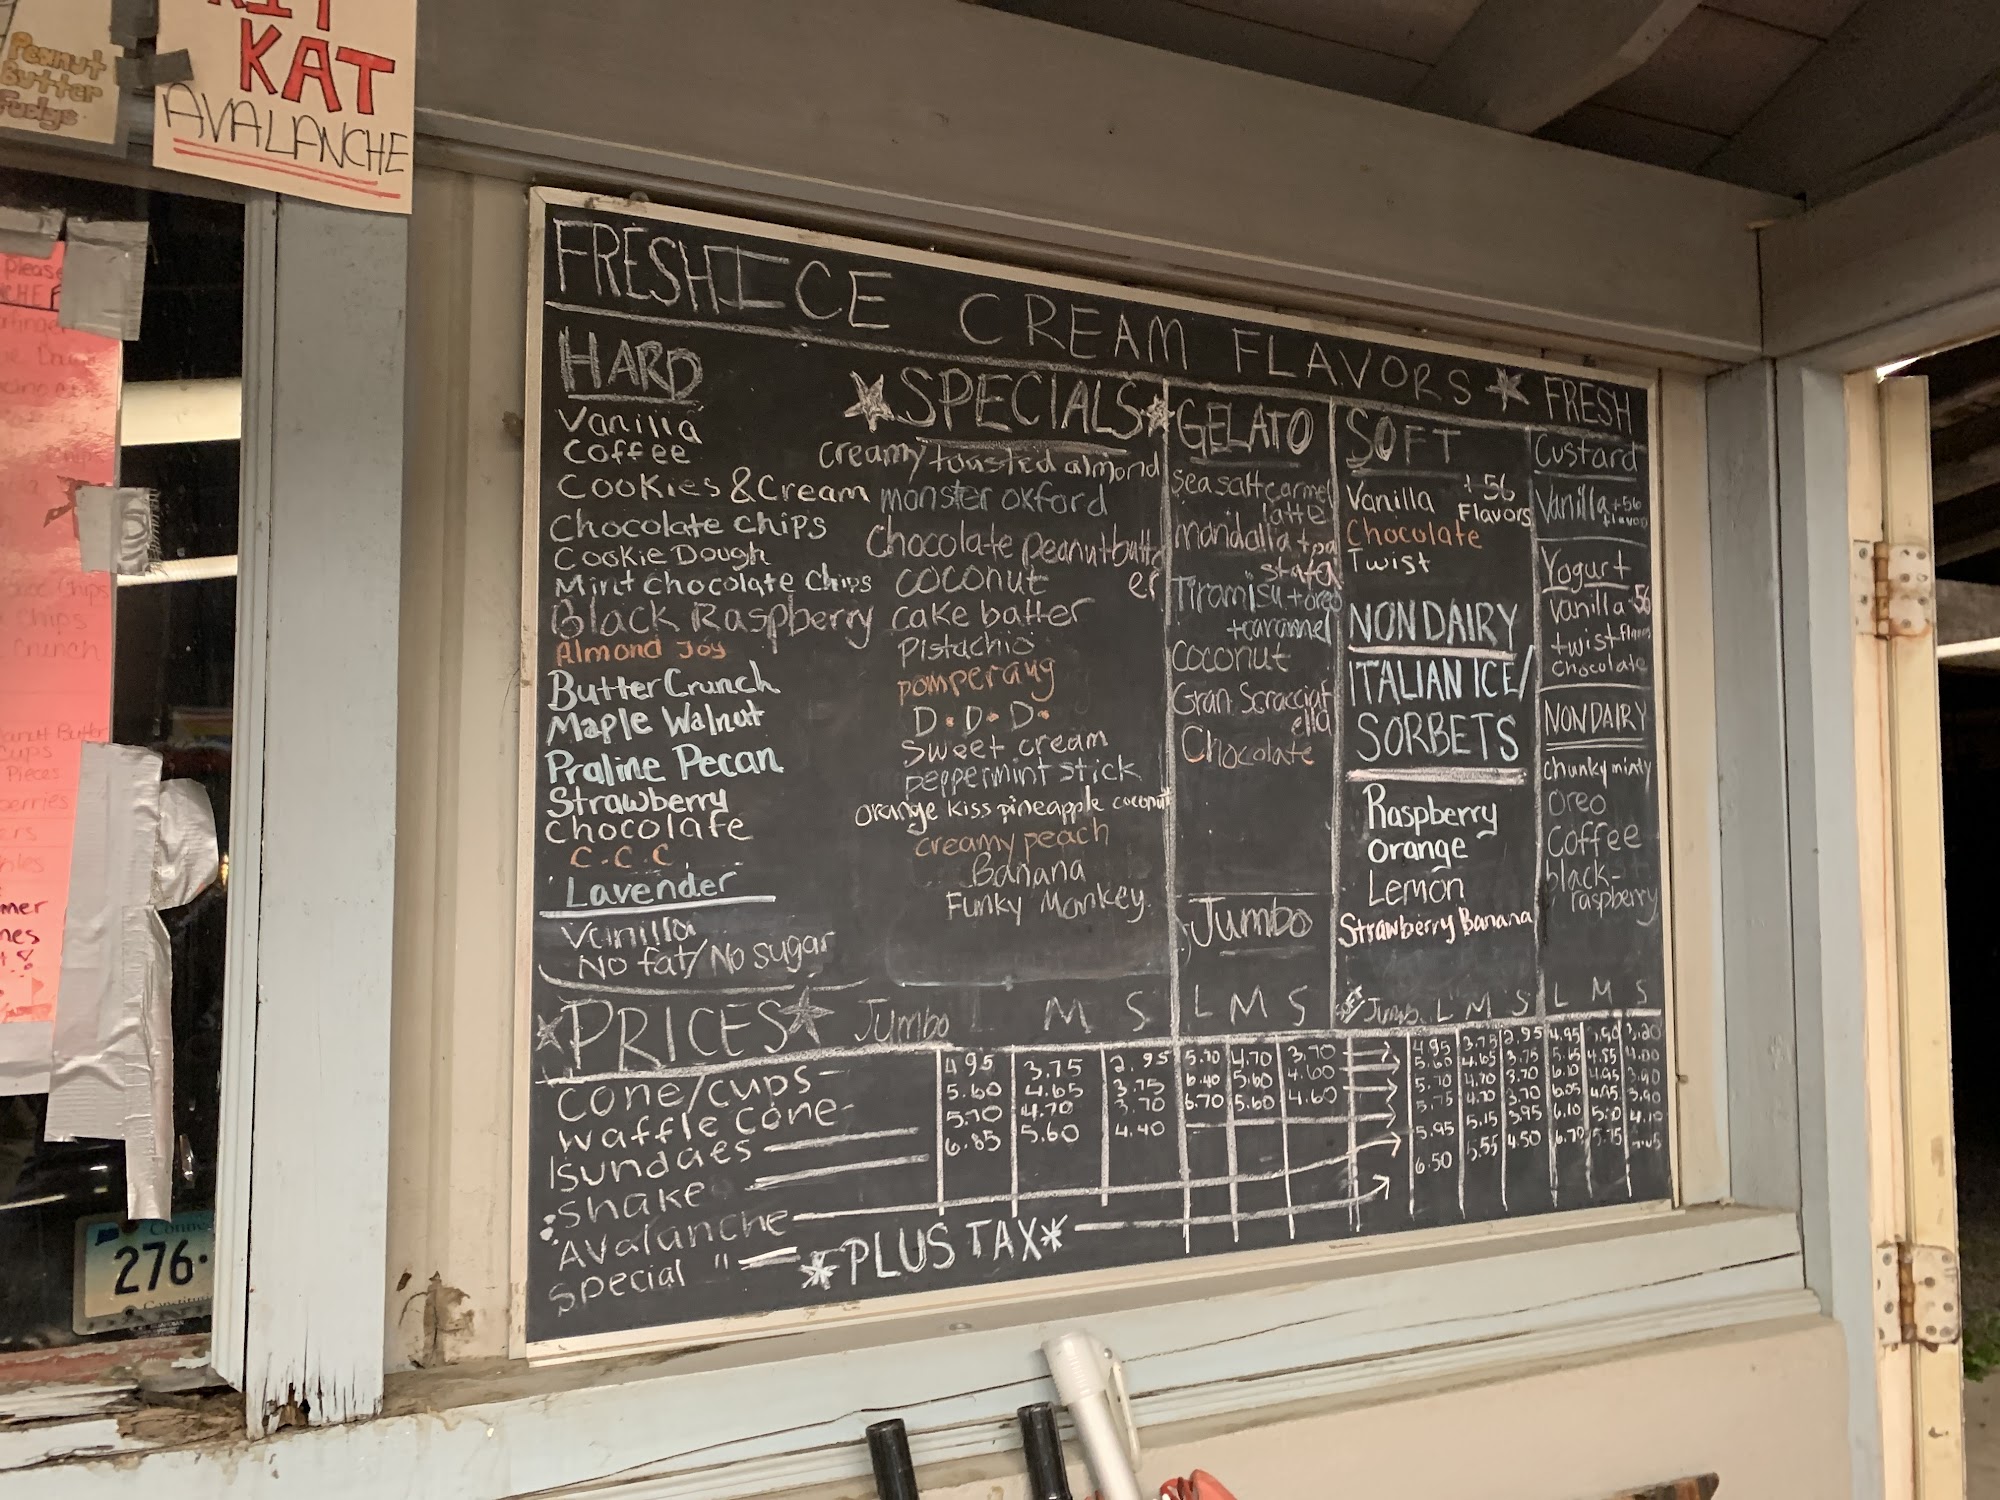 Peanut
Butter
Fudgs
KAT
AVALANCHE
Please
Chips
Crunch
Cups
Pieces
FRESH ICE CREAM FLAVORS
FRESH
HARD
Vanilla
Coffee
Cookies & Cream
Chocolate chips
Cookie Dough
Mint Chocolate Chips
Black Raspberry
Almond Joy
Butter Crunch
Maple Walnut
Praline Pecan
Strawberry
Chocolate
C.C.C.
Lavender
Vanilla
No fat/No sugar
SPECIALS
creamy toasted almond
monster oxford
Chocolate peanutbutt
er
coconut
cake batter
Pistachio
pomperaug
D.D.D.
Sweet cream
peppermint stick
orange kiss pineapple coconut
creamy peach
Banana
Funky Monkey
GELATO
sea salt carmel
latte
mandalla + pa
stata
Tiramisu + oreo
+ caramel
Coconut
Gran Scracciat
ella
Chocolate
Jumbo
SOFT
Vanilla
+ 56
Flavors
Chocolate
Twist
NONDAIRY
ITALIAN ICE/
SORBETS
Raspberry
orange
Lemon
Strawberry Banana
Custard
Vanilla +56
flavor
Yogurt
Vanilla +56
twist
Chocolate
NONDAIRY
chunky minty
Oreo
Coffee
black-
raspberry
PRICES Jumbo M S L M S Jumbo L M S L M S
cone/cups- 4.95 3.75 2.95 5.70 4.70 3.70 4.95 3.75 2.95 4.95 3.20
waffle cone- 5.60 4.65 3.75 6.40 5.60 4.60 5.60 4.65 3.75 5.65 4.85 4.00
sundaes 5.70 4.70 3.70 6.70 5.60 4.60 5.70 4.70 3.70
shake 6.85 5.60 4.40 5.75 4.70 3.70
Avalanche 5.95 5.15 3.95 6.10
special " 6.50 5.55 4.50 5.75
*PLUS TAX*
276